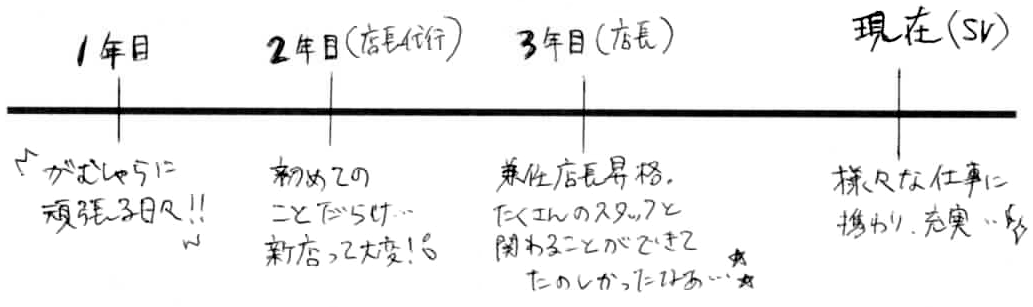 1年目
がむしゃらに
頑張る日々!!
2年目(店長代行)
初めての
ことだらけ…
新店って大変!
3年目(店長)
兼任店長昇格.
たくさんのスタッフと
関わることができて
たのしかったなあ…☆☆
現在(SV)
様々な仕事に
携わり、充実…